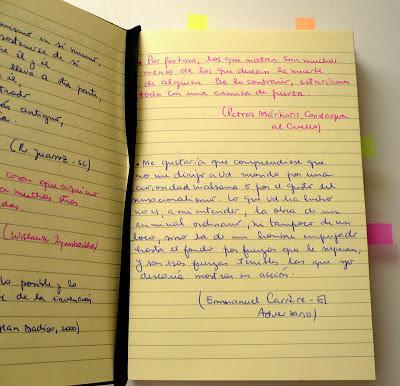 en sí mismo,
sostenerse de sí
él y el
lleva a otra parte,
él
más antiguo,
(R. Juarroz - 52)
cosas que aquí no
a muchas otras
(Wislawa Szymborska)
lo posible y lo
de la invención.
(Alan Badiou, 2000)
• Por fortuna, los que matan son muchos
menos de los que desean la muerte
de alguien. De lo contrario, estaríamos
todos con una camisa de fuerza.
(Petros Márkaris, Con el agua
al Cuello)
• Me gustaría que comprendiese que
no me dirijo a Vd. movido por una
curiosidad malsana o por el gusto del
sensacionalismo. Lo que Vd ha hecho
no es, a mi entender, la obra de un
criminal ordinario, ni tampoco de un
loco, sino la de un hombre empujado
hasta el fondo por fuerzas que le superan,
y son esas fuerzas terribles las que yo
desearía mostrar en acción.
(Emmanuel Carrère - El
Adversario)